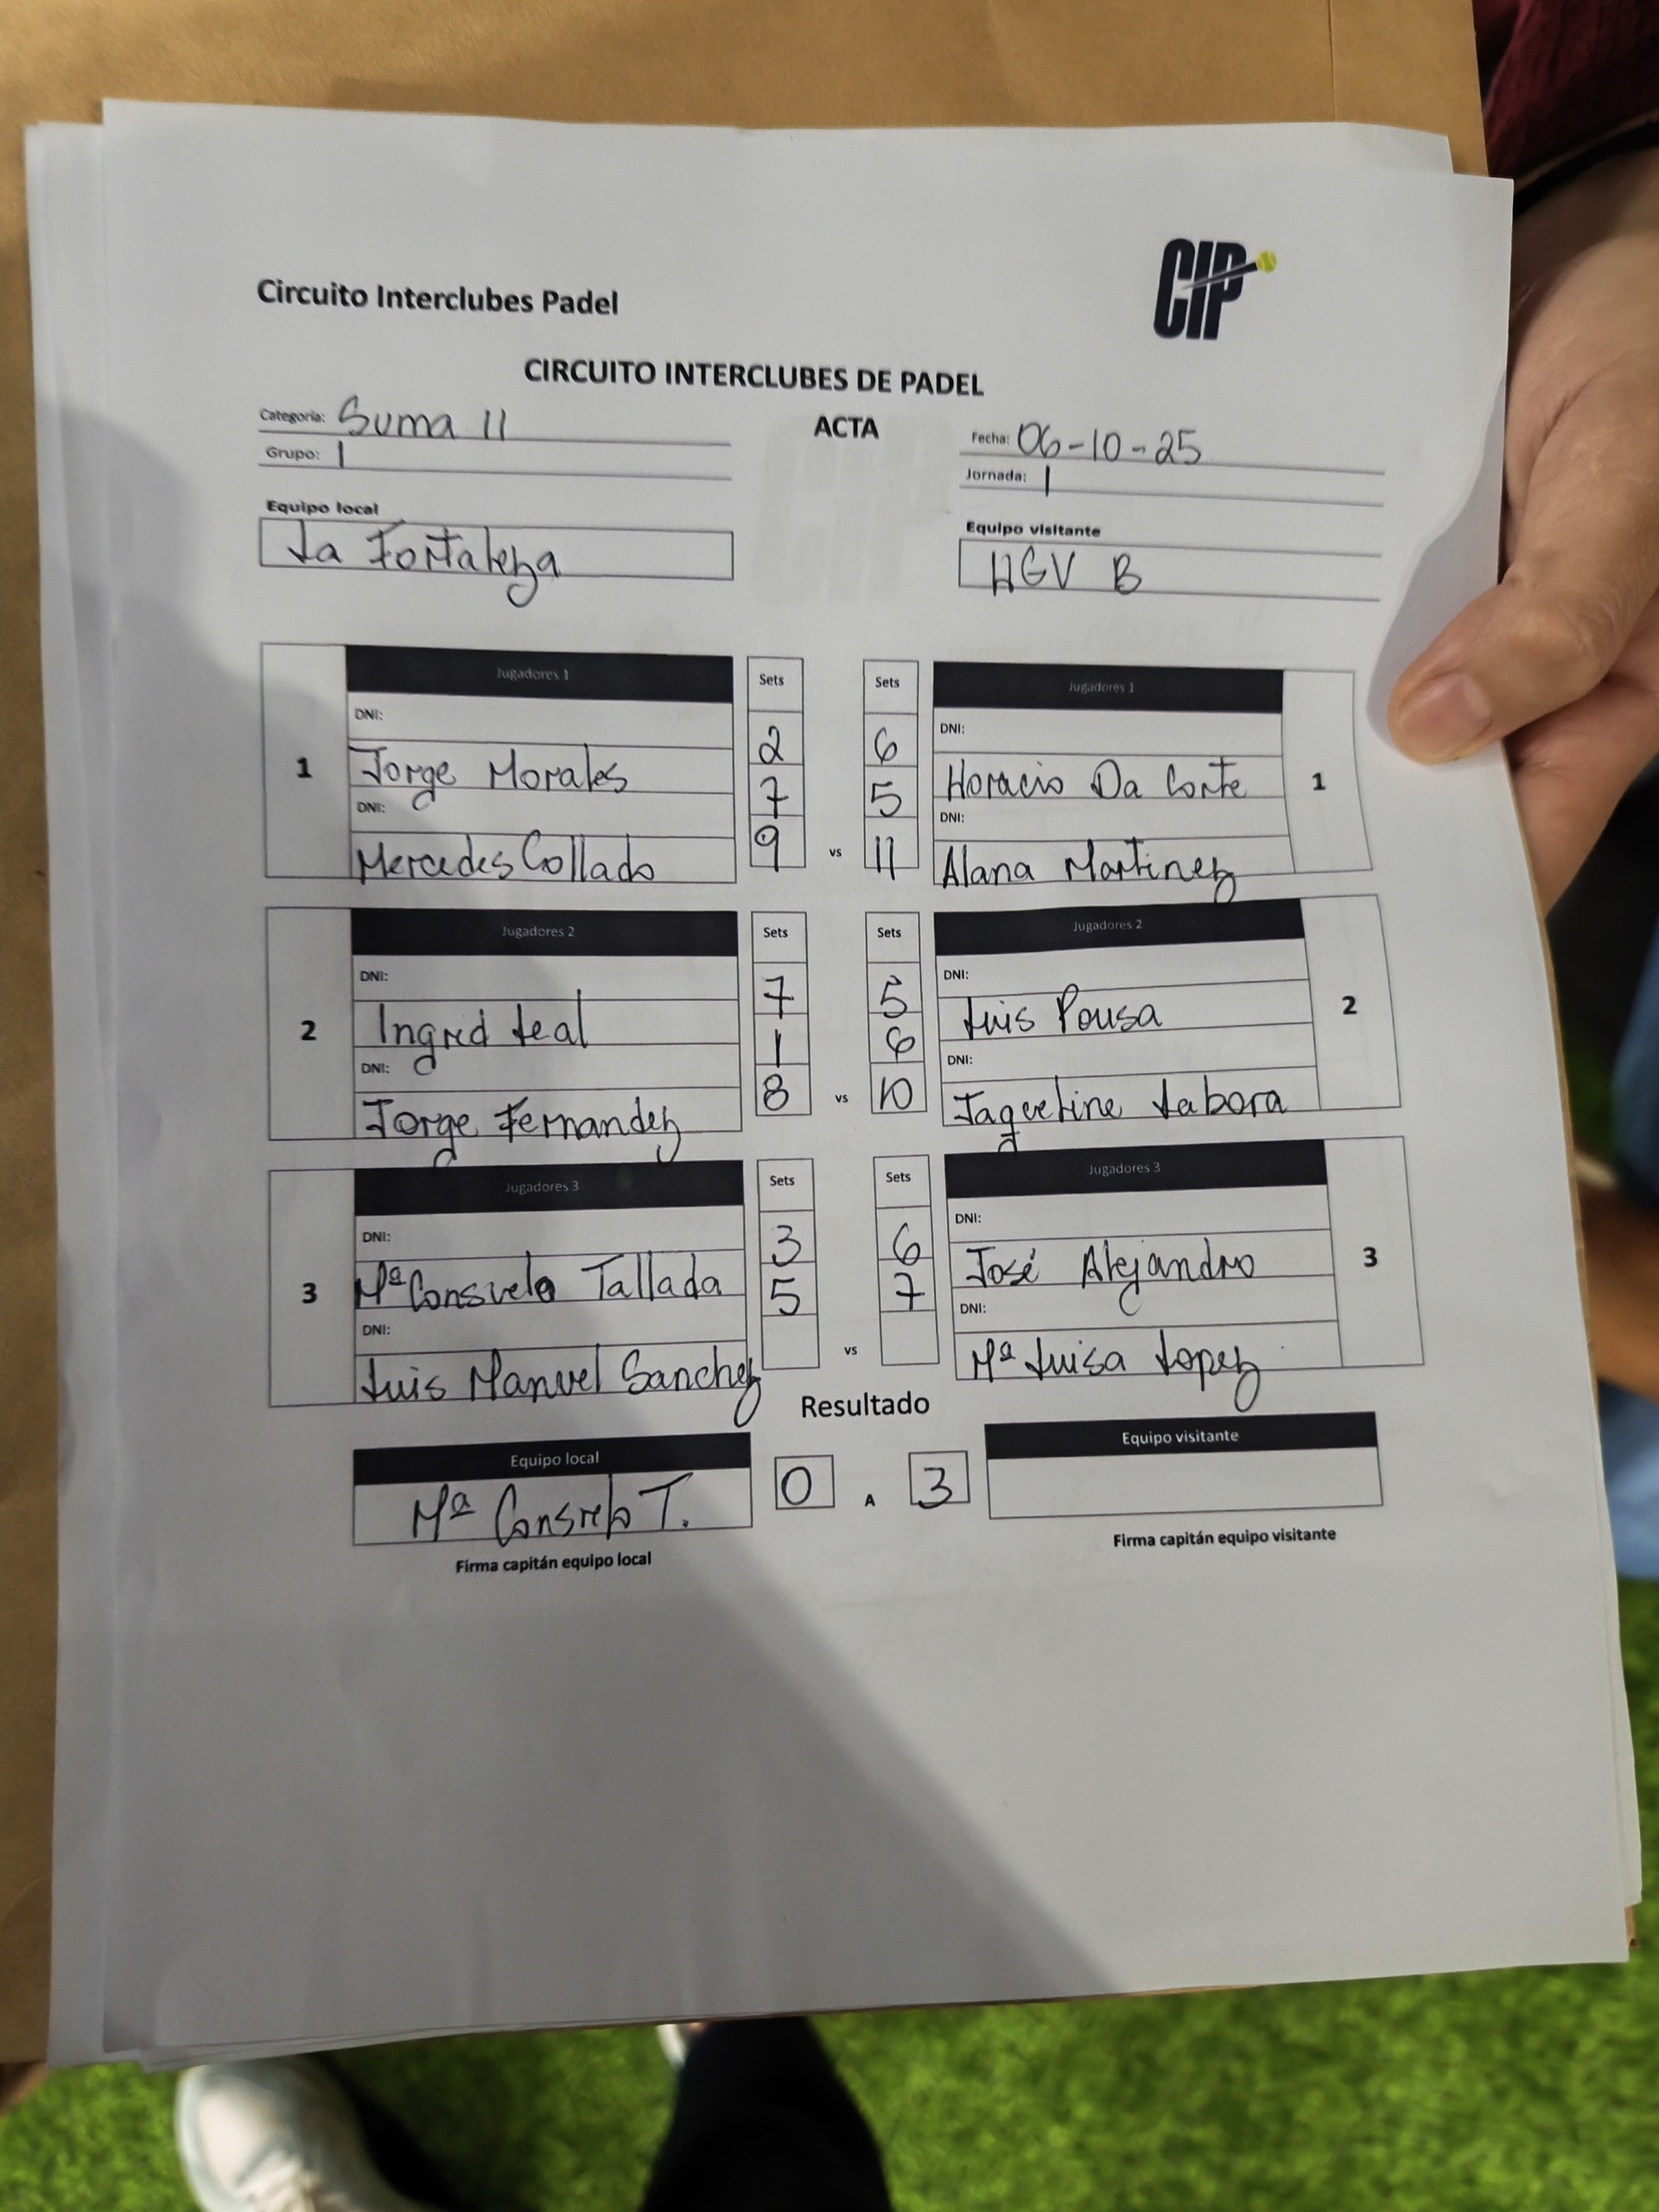 CIP
Circuito Interclubes Padel
CIRCUITO INTERCLUBES DE PADEL
ACTA
Categoría: Suma 11
Grupo: 1
Fecha: 06-10-25
Jornada: 1
Equipo local
La Fortaleza
Equipo visitante
HGV B
1
Jugadores 1
Sets
Sets
Jugadores 1
1
DNI:
DNI:
Jorge Morales 2 6 Horacio Da Corte
DNI: 7 5 DNI:
Mercedes Collado 9 vs 11 Alana Martinez
2
Jugadores 2
Sets
Sets
Jugadores 2
2
DNI:
DNI:
Ingrid Leal 7 5 Luis Pousa
DNI: 1 6 DNI:
Jorge Fernandez 8 vs 10 Jaqueline Labora
3
Jugadores 3
Sets
Sets
Jugadores 3
3
DNI:
DNI:
Mª Consuelo Tallada 3 6 José Alejandro
DNI: 5 7 DNI:
Luis Manuel Sanchez vs Mª Luisa Lopez
Resultado
Equipo local
Equipo visitante
Mª Consuelo T. 0 A 3
Firma capitán equipo local
Firma capitán equipo visitante